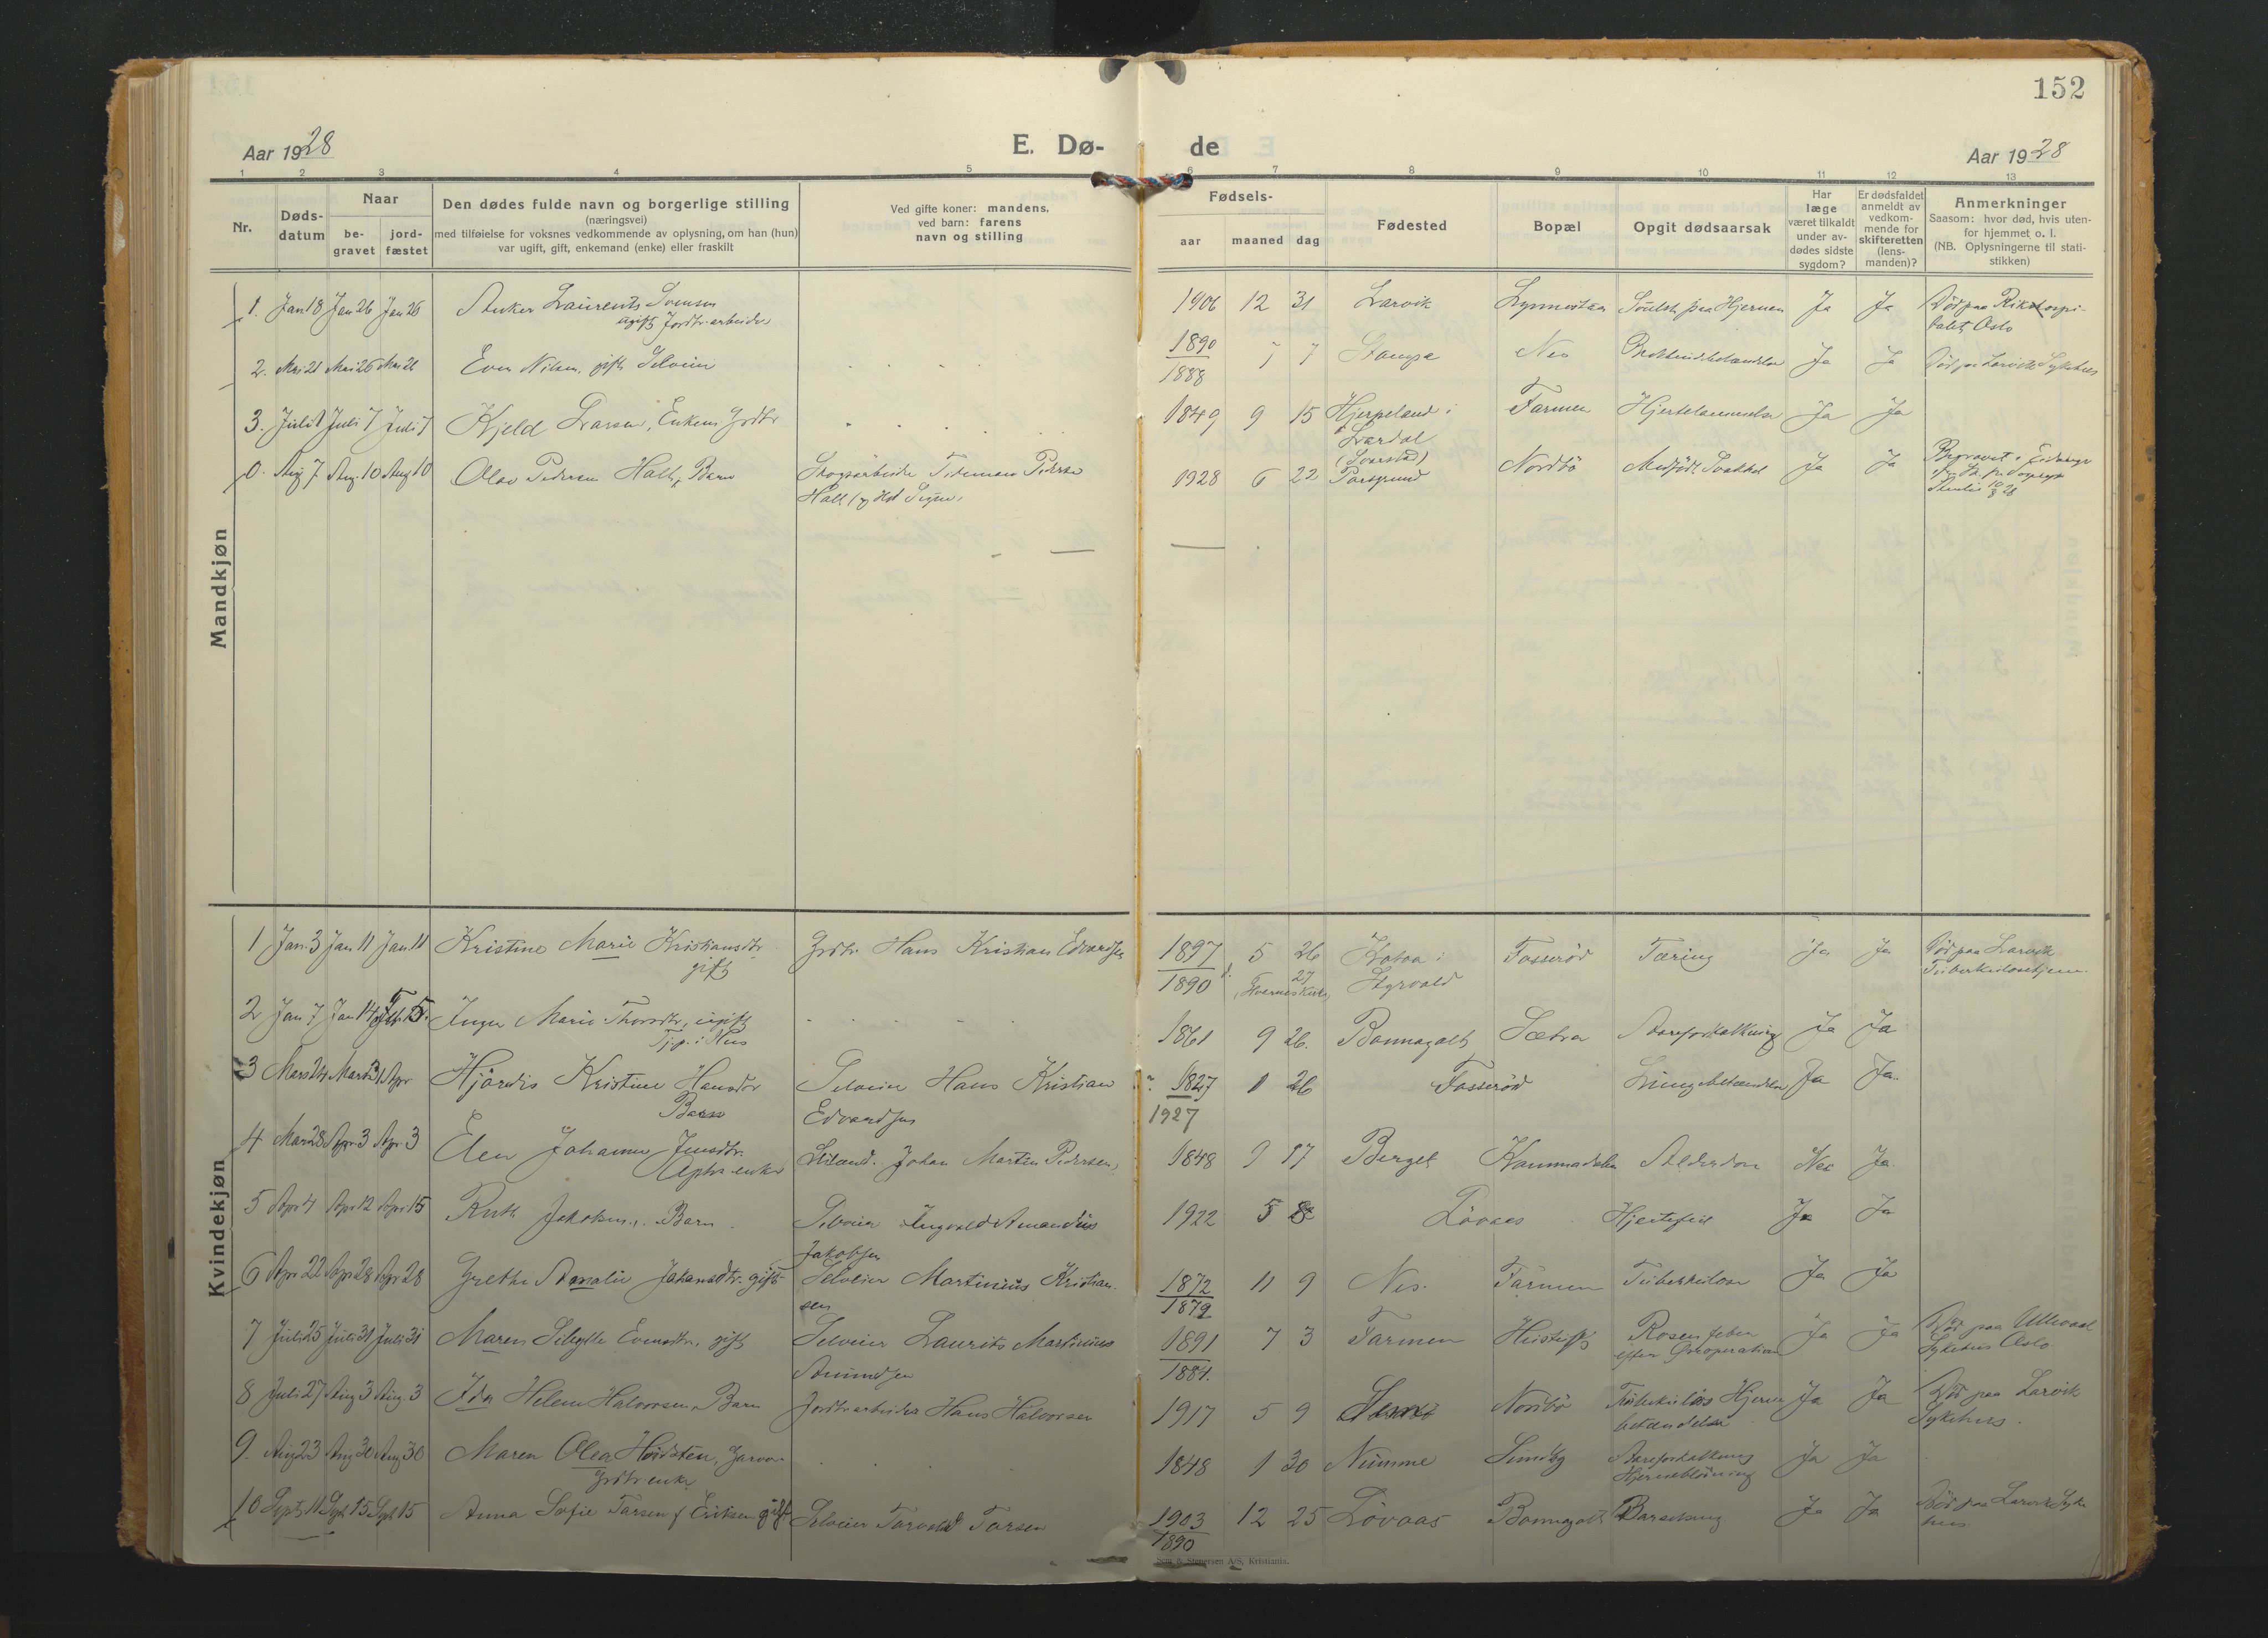 152
Aar 1928
E. Dø-
de
Aar 1928
1 2 3 4 5 6 7 8 9 10 11 12 13
Nr.
Døds-
datum
Naar
be-
gravet
jord-
fæstet
Den dødes fulde navn og borgerlige stilling
(næringsvei)
med tilføielse for voksnes vedkommende av oplysning, om han (hun)
var ugift, gift, enkemand (enke) eller fraskilt
Ved gifte koner: mandens,
ved barn: farens
navn og stilling
Fødsels-
aar
maaned
dag
Fødested
Bopæl
Opgit dødsaarsak
Har
læge
været tilkaldt
under av-
dødes sidste
sygdom?
Er dødsfaldet
anmeldt av
vedkom-
mende for
skifteretten
(lens-
manden)?
Anmerkninger
Saasom: hvor død, hvis uten-
for hjemmet o. l.
(NB. Oplysningerne til stati-
stikken)
Mandkjøn
1. Jan 18 Jan 26 Jan 26 Anker Laurents 1906 12 31 Larvik Svulst paa Hjernen Ja Ja Død paa Rikshospi-
ugift Jordbr. arbeider
talet, Oslo
2. Mai 21 Mai 26 Mai 26 Even Nilsen, gift Selveier 1890 7 7 Nes Ja Ja Død paa Larvik Sykehus
1888
3. Juli 1 Juli 7 Juli 7 Kjeld Larsen, Enkem. Grdbr 1849 9 15 Hjerpeland i Farmen Hjertelammelse Ja Ja
Lardal
(Svarstad)
0. Aug 7 Aug. 10 Aug 10 Olav Pedersen Holt, Barn Skogsarbeider Pedersen 1928 6 22 Porsgrund Nordbö Medfödt Svakhet Ja Ja Begravet i Eidanger
Kvindekjøn
1 Jan. 3 Jan 11 Jan. 11 Kristine Marie Kristiansdtr. Grdbr. Hans Kristian Edvardsen 1897 5 26 i Fosserød Tæring Ja Ja Död paa Larvik
gift
1890 27 Styrvold Tuberkulosehjem
2 Jan 7 Jan 14 Inger Marie Thorsdtr, ugift 1861 9 26. Bonnegolt Sætra Aareforkalkning Ja Ja
Tjp. i Hus
3 Mars 24 Mars 31 Apr Hjördis Kristine Hansdtr Selveier Hans Kristian 1827 1 26 Fosserød Lungebetændelse Ja Ja.
Barn
Edvardsen
1927
4 Mar 28 Apr. 3 Apr. 3 Elen Johanne Jensdtr. Johan Martin Pedersen, 1848 9 17 Berget Alderdom Nei Ja.
enke
5 Apr 4 Apr 12 Apr 15 Ruth Jakobsen. Barn Selveier Ingvald Amandus 1922 5 8 Lövaas Hjertefeil Ja Ja
Jakobsen
6 Apr 22 Apr 28 Apr 28 Grethe Amalie Johansdtr. gift Selveier Martinius Kristian- 1872 11 9 Nes. Farmen Tuberkulose Ja Ja
sen
1879
7 Juli 25 Juli 31 Juli 31 Maren Sibylle Evensdtr, gift Selveier Laurits Martinius 1891 7 3 Farmen Rosenfeber Ja Ja Död paa Ullevaal
Amundsen
1884.
efter Öreoperation
Sykehus Oslo
8 Juli 27 Aug 3 Aug. 3 Ida Helene Halvorsen, Barn Jordbr. arbeider Hans Halvorsen 1917 5 9 Nordbö Tuberkulös Hjerne Ja Ja Död paa Larvik
betændelse
Sykehus.
9. Aug 23 Aug 30 Aug 30 Maren Olea 1848 1 30 Numme Aareforkalkning Ja Ja
Grdbr enke
Hjerneblödning
10 Sept. 11 Spt. 15 Spt 15 Anna Sofie Tarsen f. Eriksen gift Selveier Torvald Tarsen 1903 12 25 Lövaas Bonnegolt Barselseng Ja Ja Död paa Larvik Syke
hus
1890
Sem & Stenersen A/S, Kristiania.